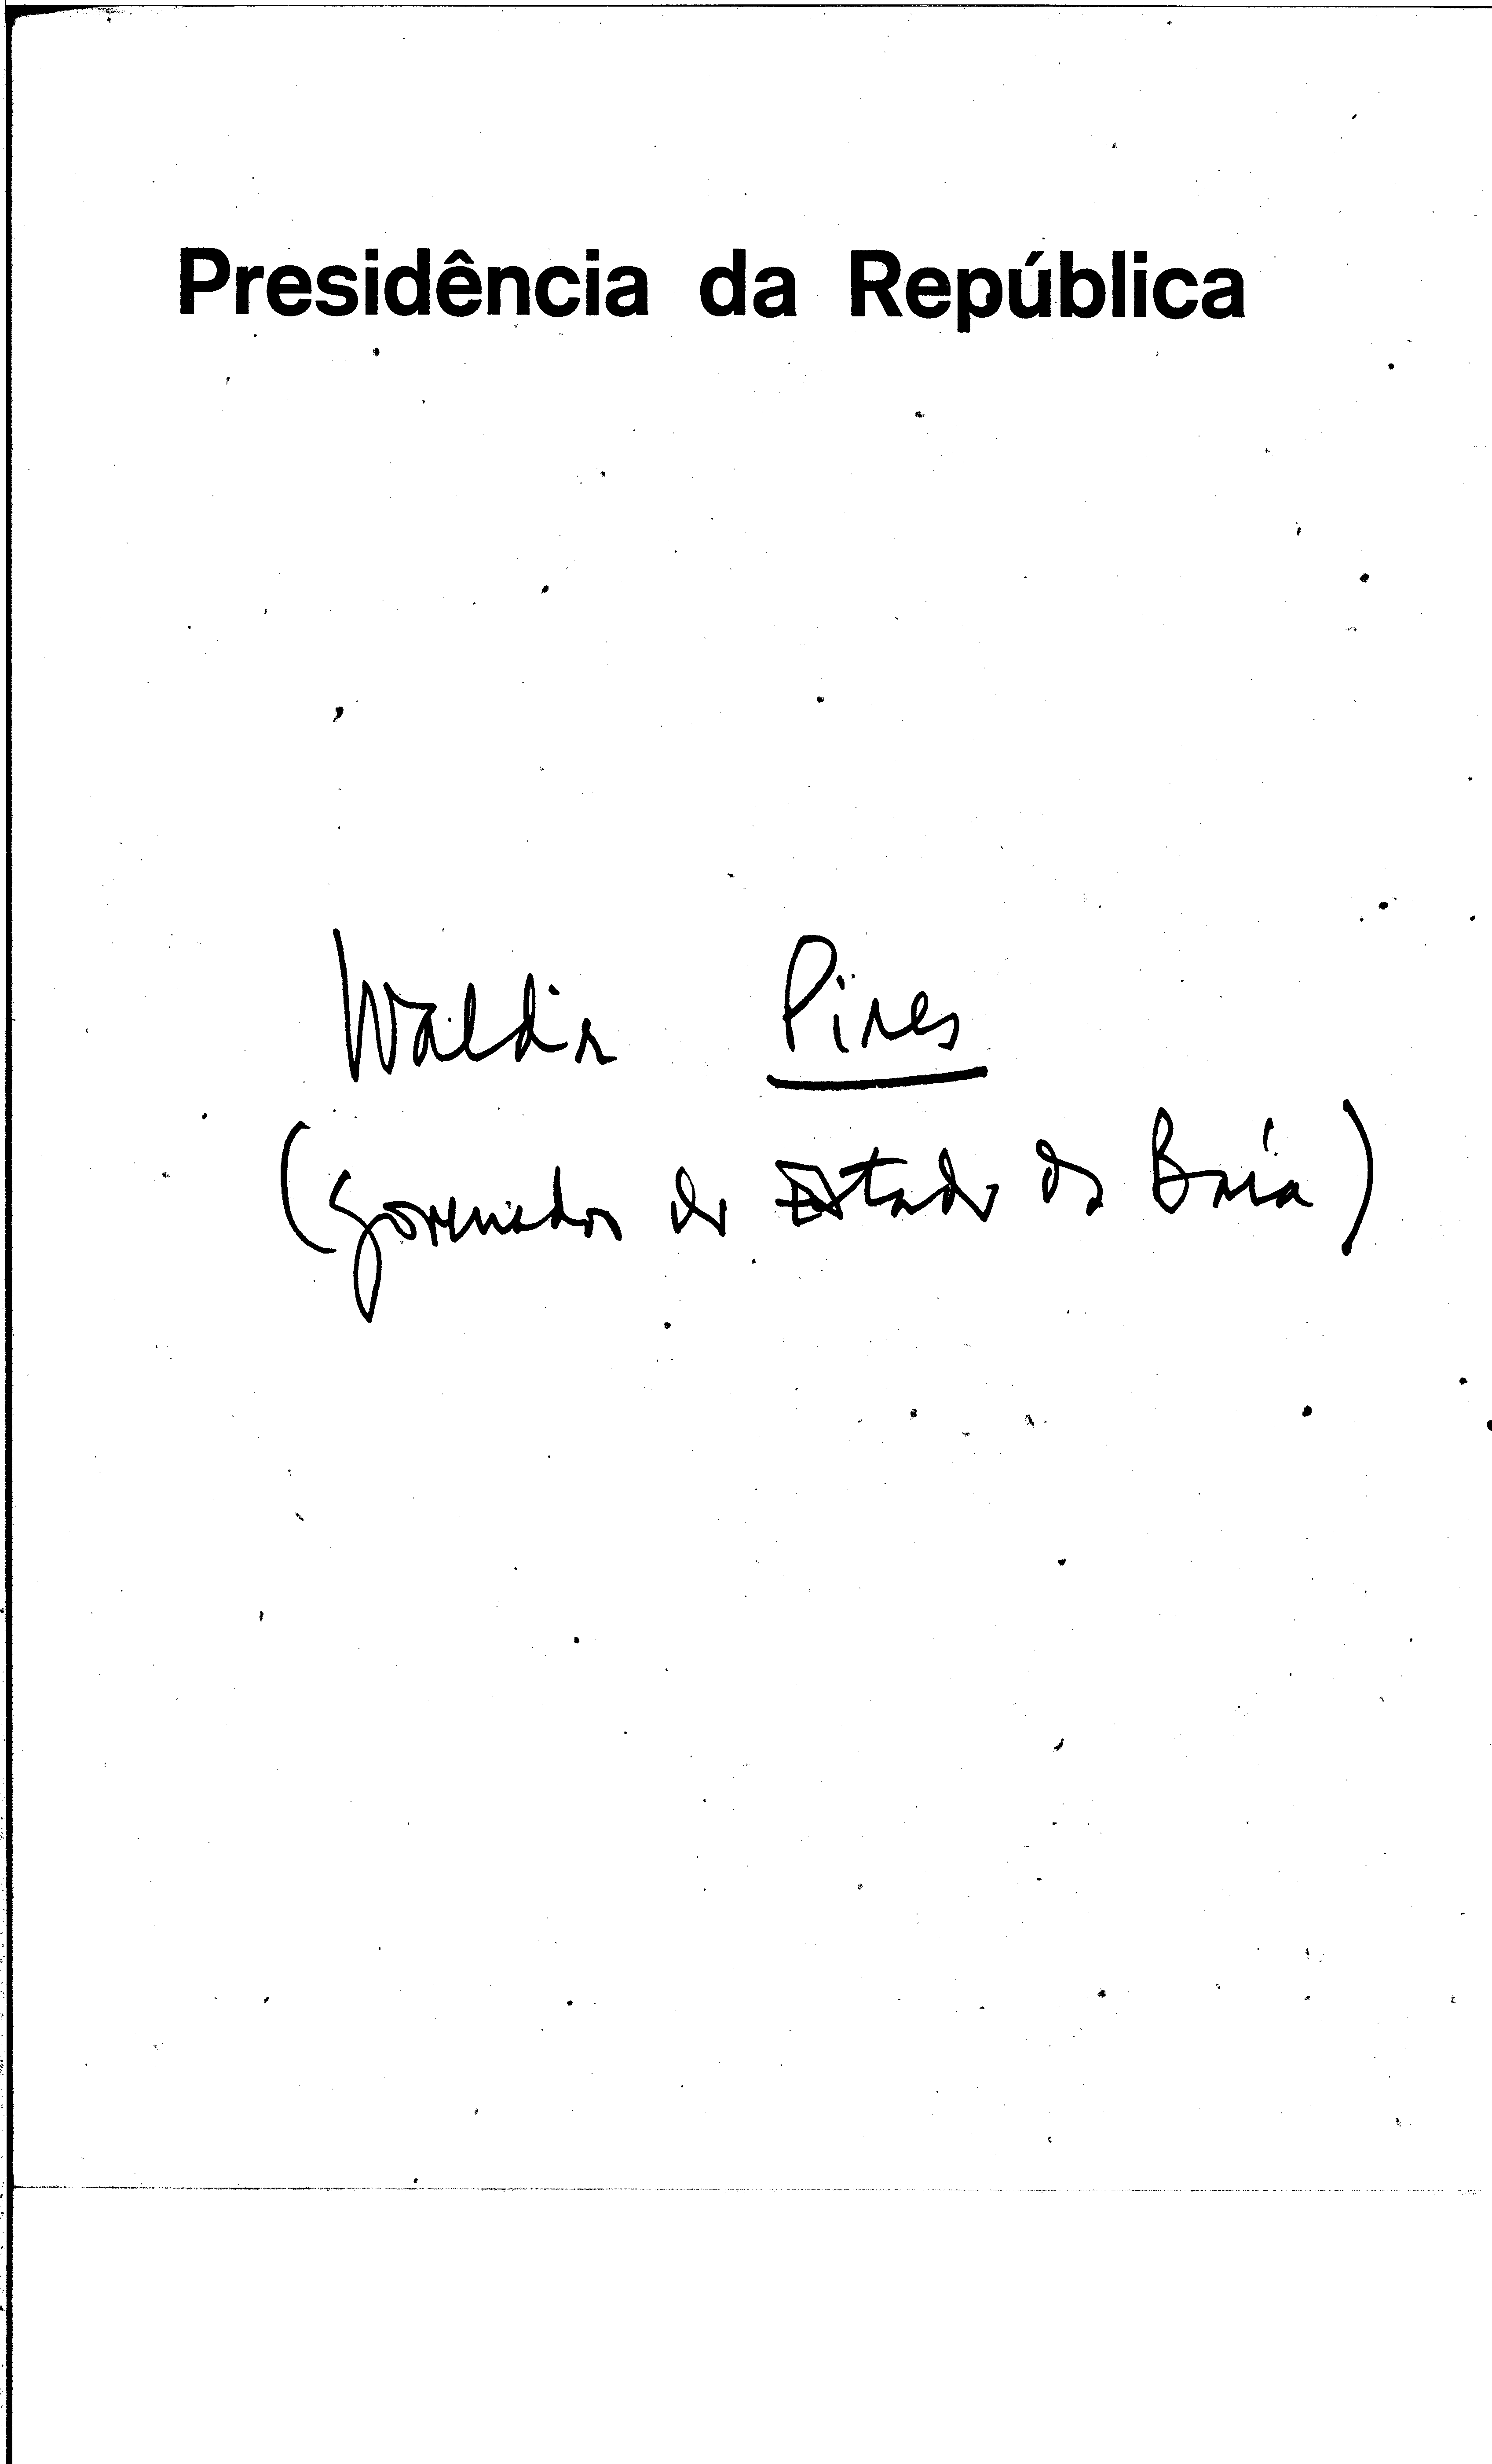 Presidência da República
Waldir Pires
(Governador do Estado da Baía)